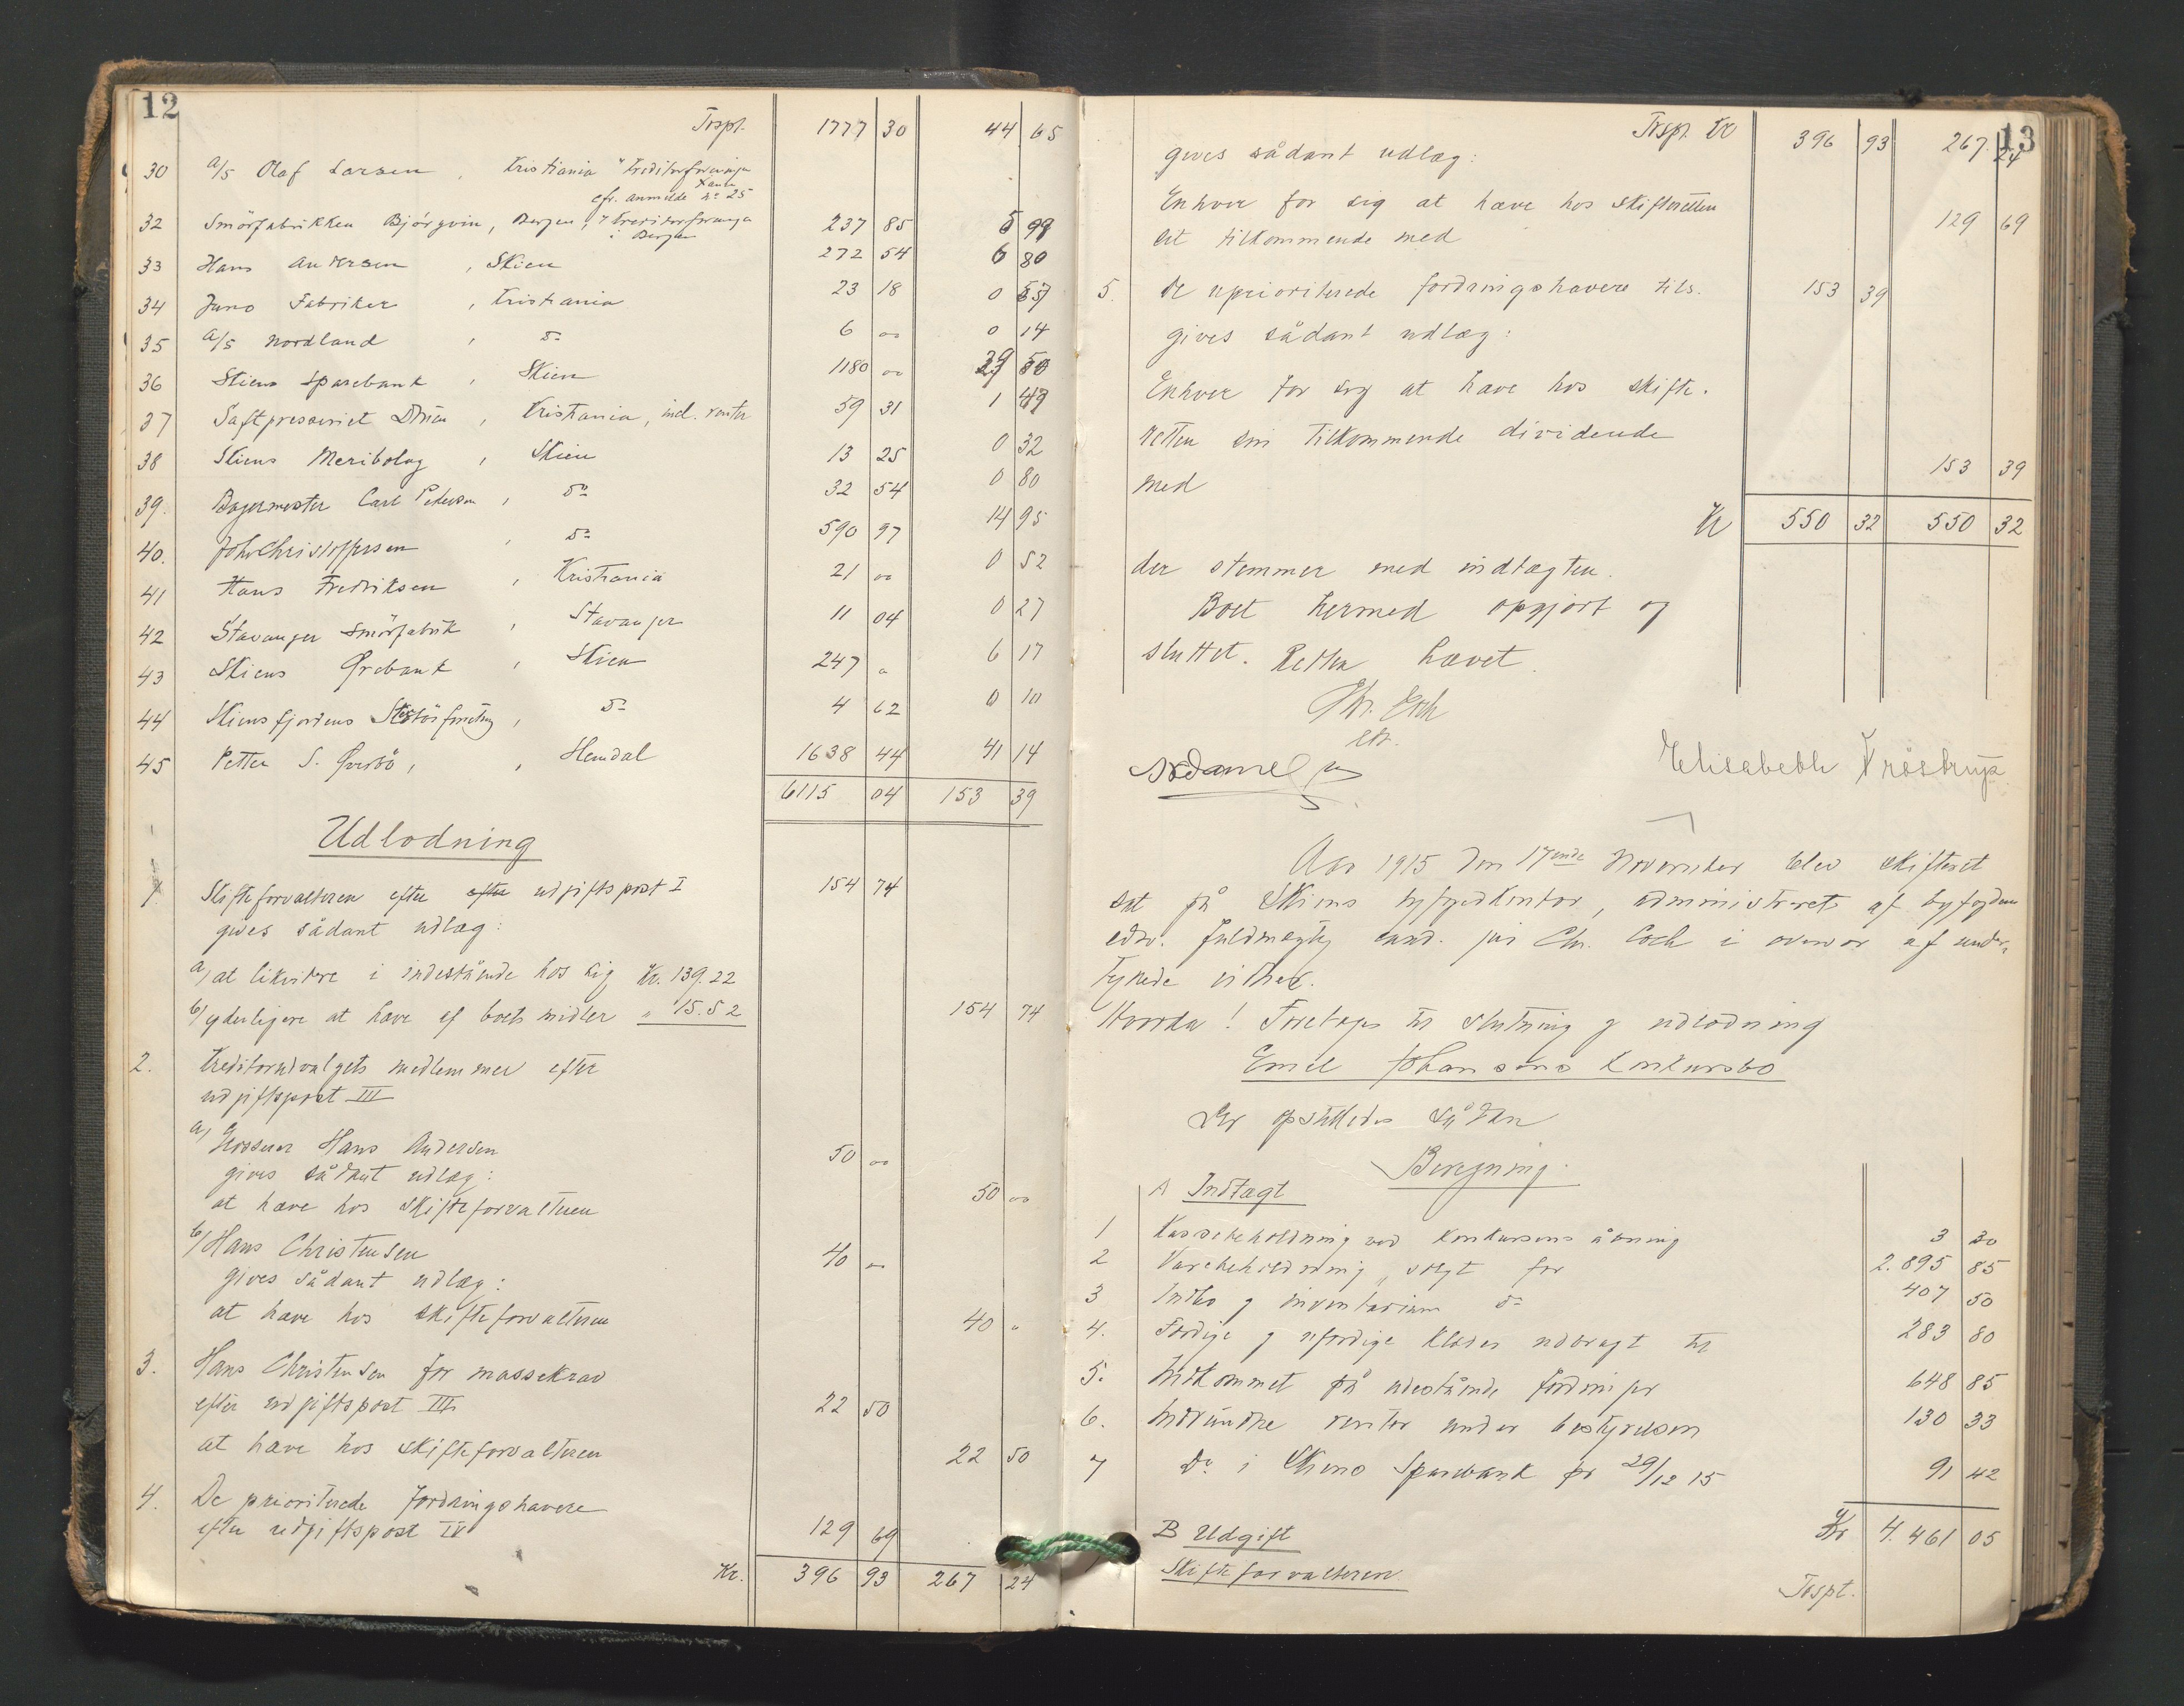 12
Trspt. 1777 30 44 65
30 A/S Olaf Larsen, Kristiania v/ Kreditorforeningen
cfr. anmelde nr 25
32 Smörfabrikken Björgvin, Bergen, v/ Kreditorforeningen 237 85 5 99
i Bergen
33 Hans Andersen, Skien 272 54 6 80
34 Juno Fabriker, Kristiania 23 18 0 57
35 A/S Nordland, do 6 00 0 14
36 Skiens Sparebank, Skien 1180 00 29 50
37 Saftpresseriet, Kristiania, incl. renter 59 31 1 49
38 Skiens Meribolag, Skien 13 25 0 32
39. Bagermester Carl Petersen, do 32 54 0 80
40. Joh. Christophersen, do 590 97 14 95
41 Hans Fredriksen, Kristiania 21 00 0 52
42 Stavanger Smörfabrik, Stavanger 11 04 0 27
43 Skiens Ørebank, Skien 247 " 6 17
44 Skiensfjordens, do 4 62 0 10
45 Petter S. Qversö, Hemdal 1638 44 41 14
6115 04 153 39
Udlodning
1. Skifteforvalteren efter efter udgiftspost I 154 74
gives sådant udlæg:
a/ at likvidere i indestående hos sig Kr. 139.22
b/ yderligere at hæve af boets midler " 15.52 154 74
2. Kreditorudvalgets medlemmer efter
udgiftspost III
a/ Grosserer Hans Andersen 50 00
gives sådant udlæg:
at hæve hos skifteforvalteren 50 00
b/ Hans Christensen 40 00
gives sådant udlæg:
at hæve hos skifteforvalteren 40 "
3. Hans Christensen for massekrav
efter udgiftspost III 22 50
at hæve hos skifteforvalteren 22 50
4. De prioriterede fordringshavere
efter udgiftspost IV 129 69
Kr. 396 93 267 24
13
Trspt. Kr 396 93 267. 24
gives sådant udlæg:
Enhver for sig at hæve hos skifteretten
sit tilkommende med 129 69
5. De uprioriterede fordringshavere tils. 153 39
gives sådant udlæg:
Enhver for sig at hæve hos skifte-
retten sin tilkommende dividende
med 153 39
Kr 550 32 550 32
der stemmer med indtægten.
Boet hermed opgjort og
sluttet. Retten hævet.
Chr. Coch
cst.
Elisabeth Tröstrup
Aar 1915 den 17ende November blev skifteret
sat på Skiens byfogedkontor, administreret af byfogdens
edsv. fuldmægtig cand. jur Chr. Coch i overvær af under-
tegnede vidner.
Hvorda! Foretages til slutning og udlodning
Emil Johansens konkursbo
Der opstilledes sådan
Beregning.
A Indtægt
1 Kassebeholdning ved konkursens åbning 3 30
2 Varebeholdning solgt for 2.895 85
3 Indbo og inventarium do 407 50
4. Færdige og ufærdige klæder udbragt til 283 80
5. Indkommet på udestående fordringer 648 85
6. Indvundne renter under bestyrelsen 130 33
7 Do i Skiens Sparebank pr 29/12 15 91 42
Kr 4.461 05
B Udgift
Skifteforvalteren
Trspt.